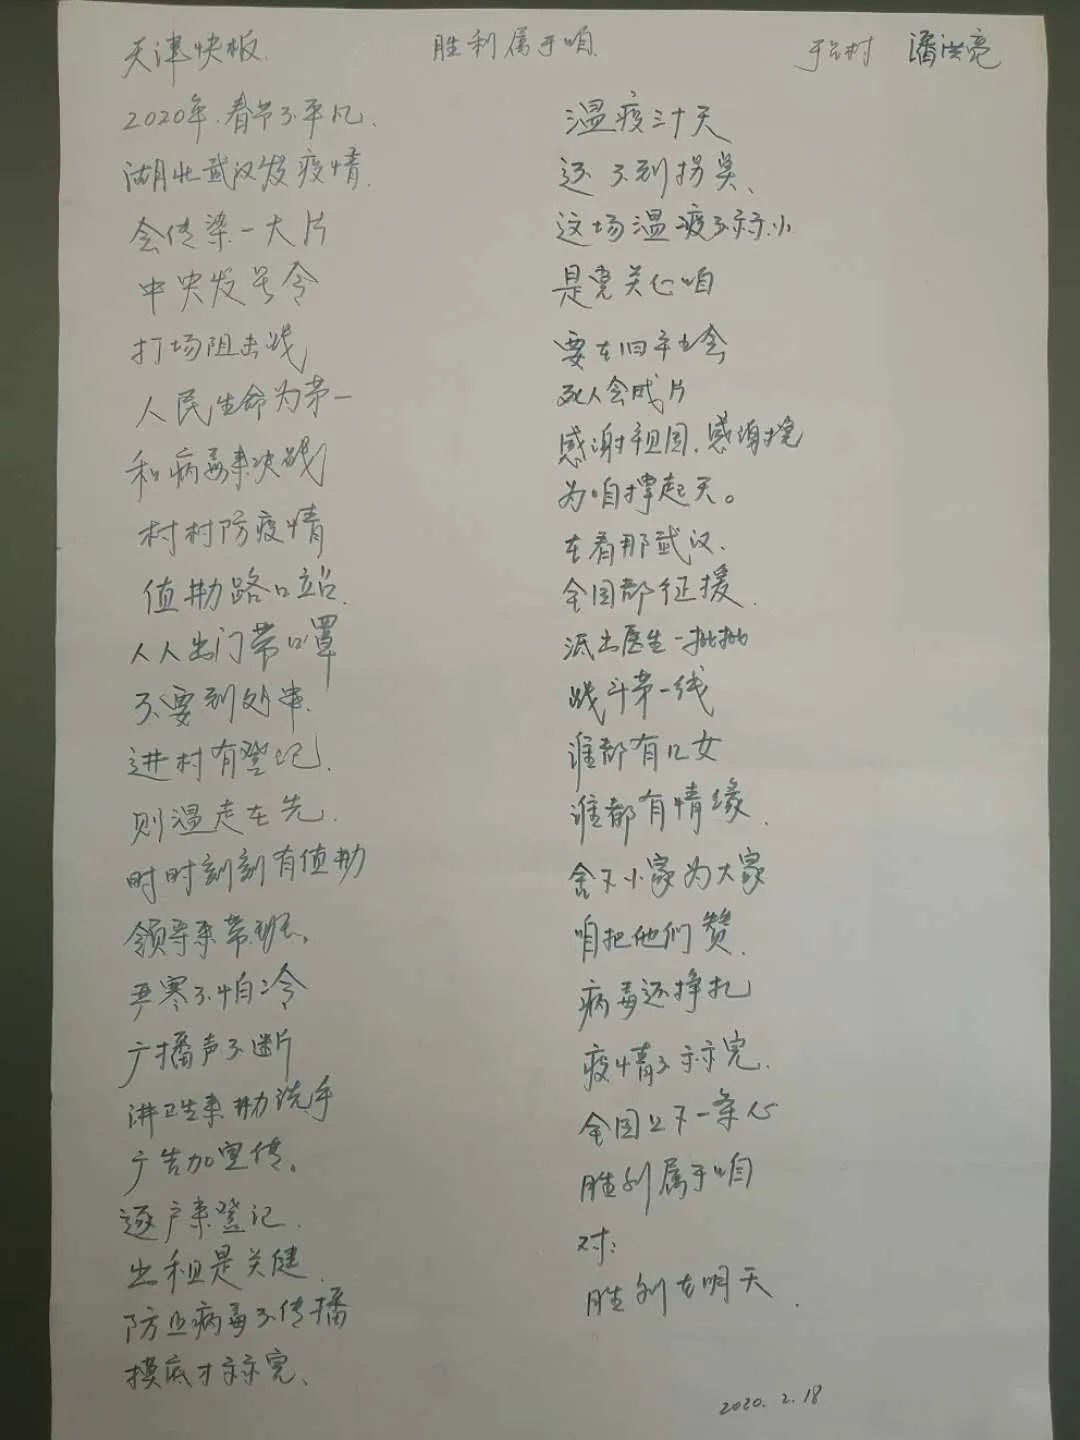 天津快板 胜利属于咱 于台村 潘洪亮
2020年.春节不平凡.
湖北武汉发疫情.
会传染一大片
中央发号令
打场阻击战
人民生命为第一
和病毒来决战
村村防疫情
值勤路口站.
人人出门带口罩
不要到处串.
进村有登记.
测温走在先.
时时刻刻有值勤
领导来带班.
严寒不怕冷
广播声不断
讲卫生来勤洗手
广告加宣传。
逐户来登记.
出租是关健.
防止病毒不传播
摸底才算完、
温疫三十天
还不到拐奌、
这场温疫不算小
是党关心咱
要在旧社会
死人会成片
感谢祖国.感谢党
为咱撑起天。
在看那武汉.
全国都征援.
派出医生一批批
战斗第一线
谁都有儿女
谁都有情缘.
舍下小家为大家
咱把他们赞.
病毒还挣扎
疫情不算完.
全国上下一条心
胜利属于咱
对:
胜利在明天.
2020.2.18